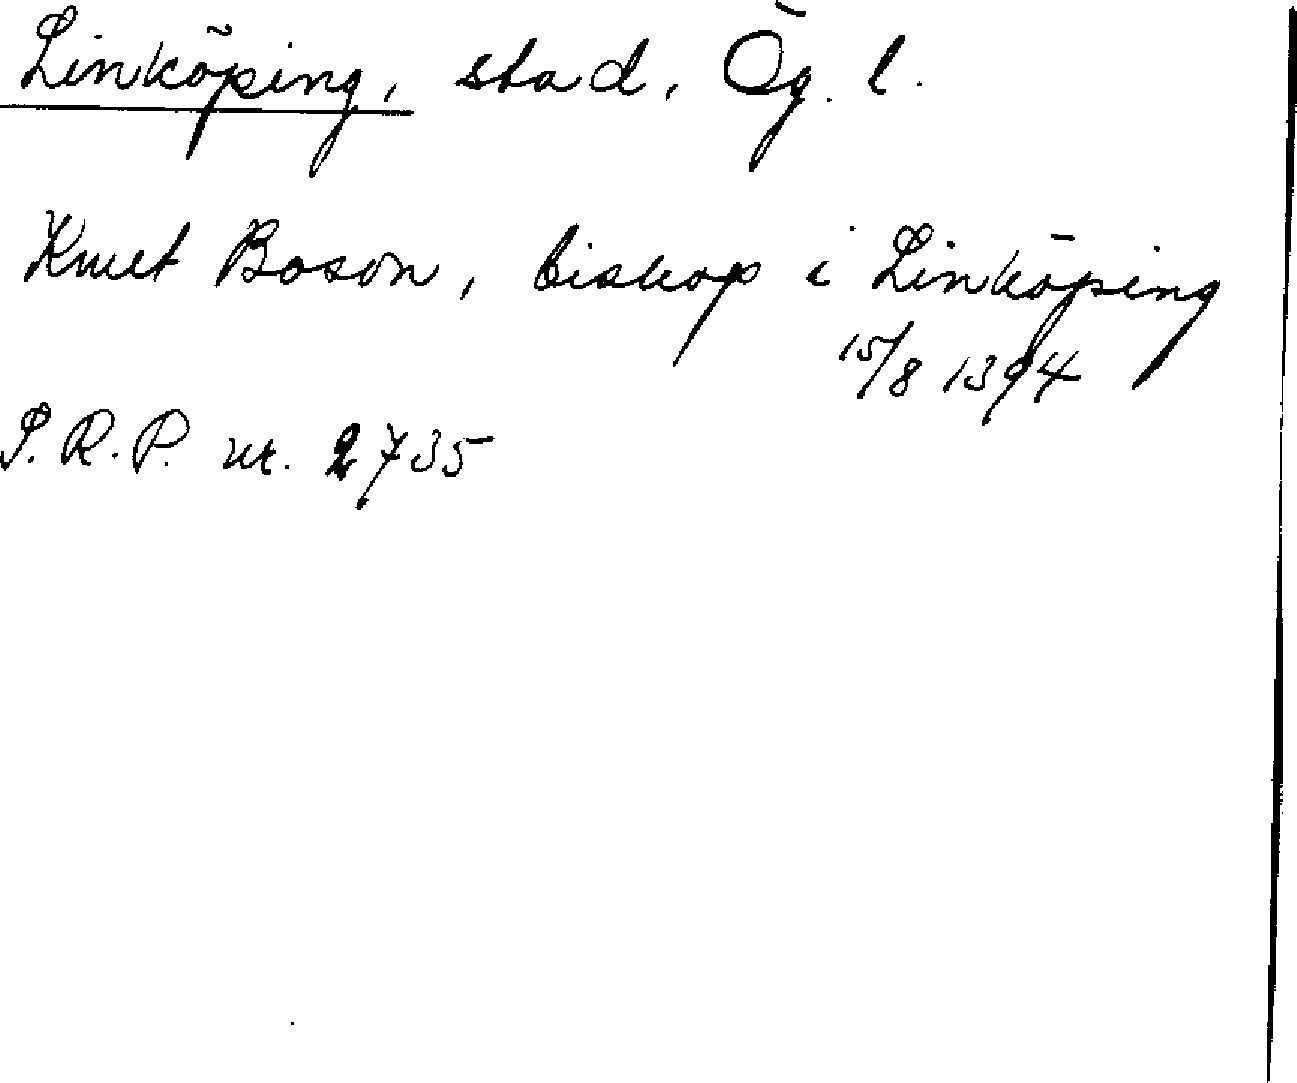 Linköping, stad, Ög. l.
Knut Boson, biskop i Linköping
15/8 1394
S.R.P. nr. 2735